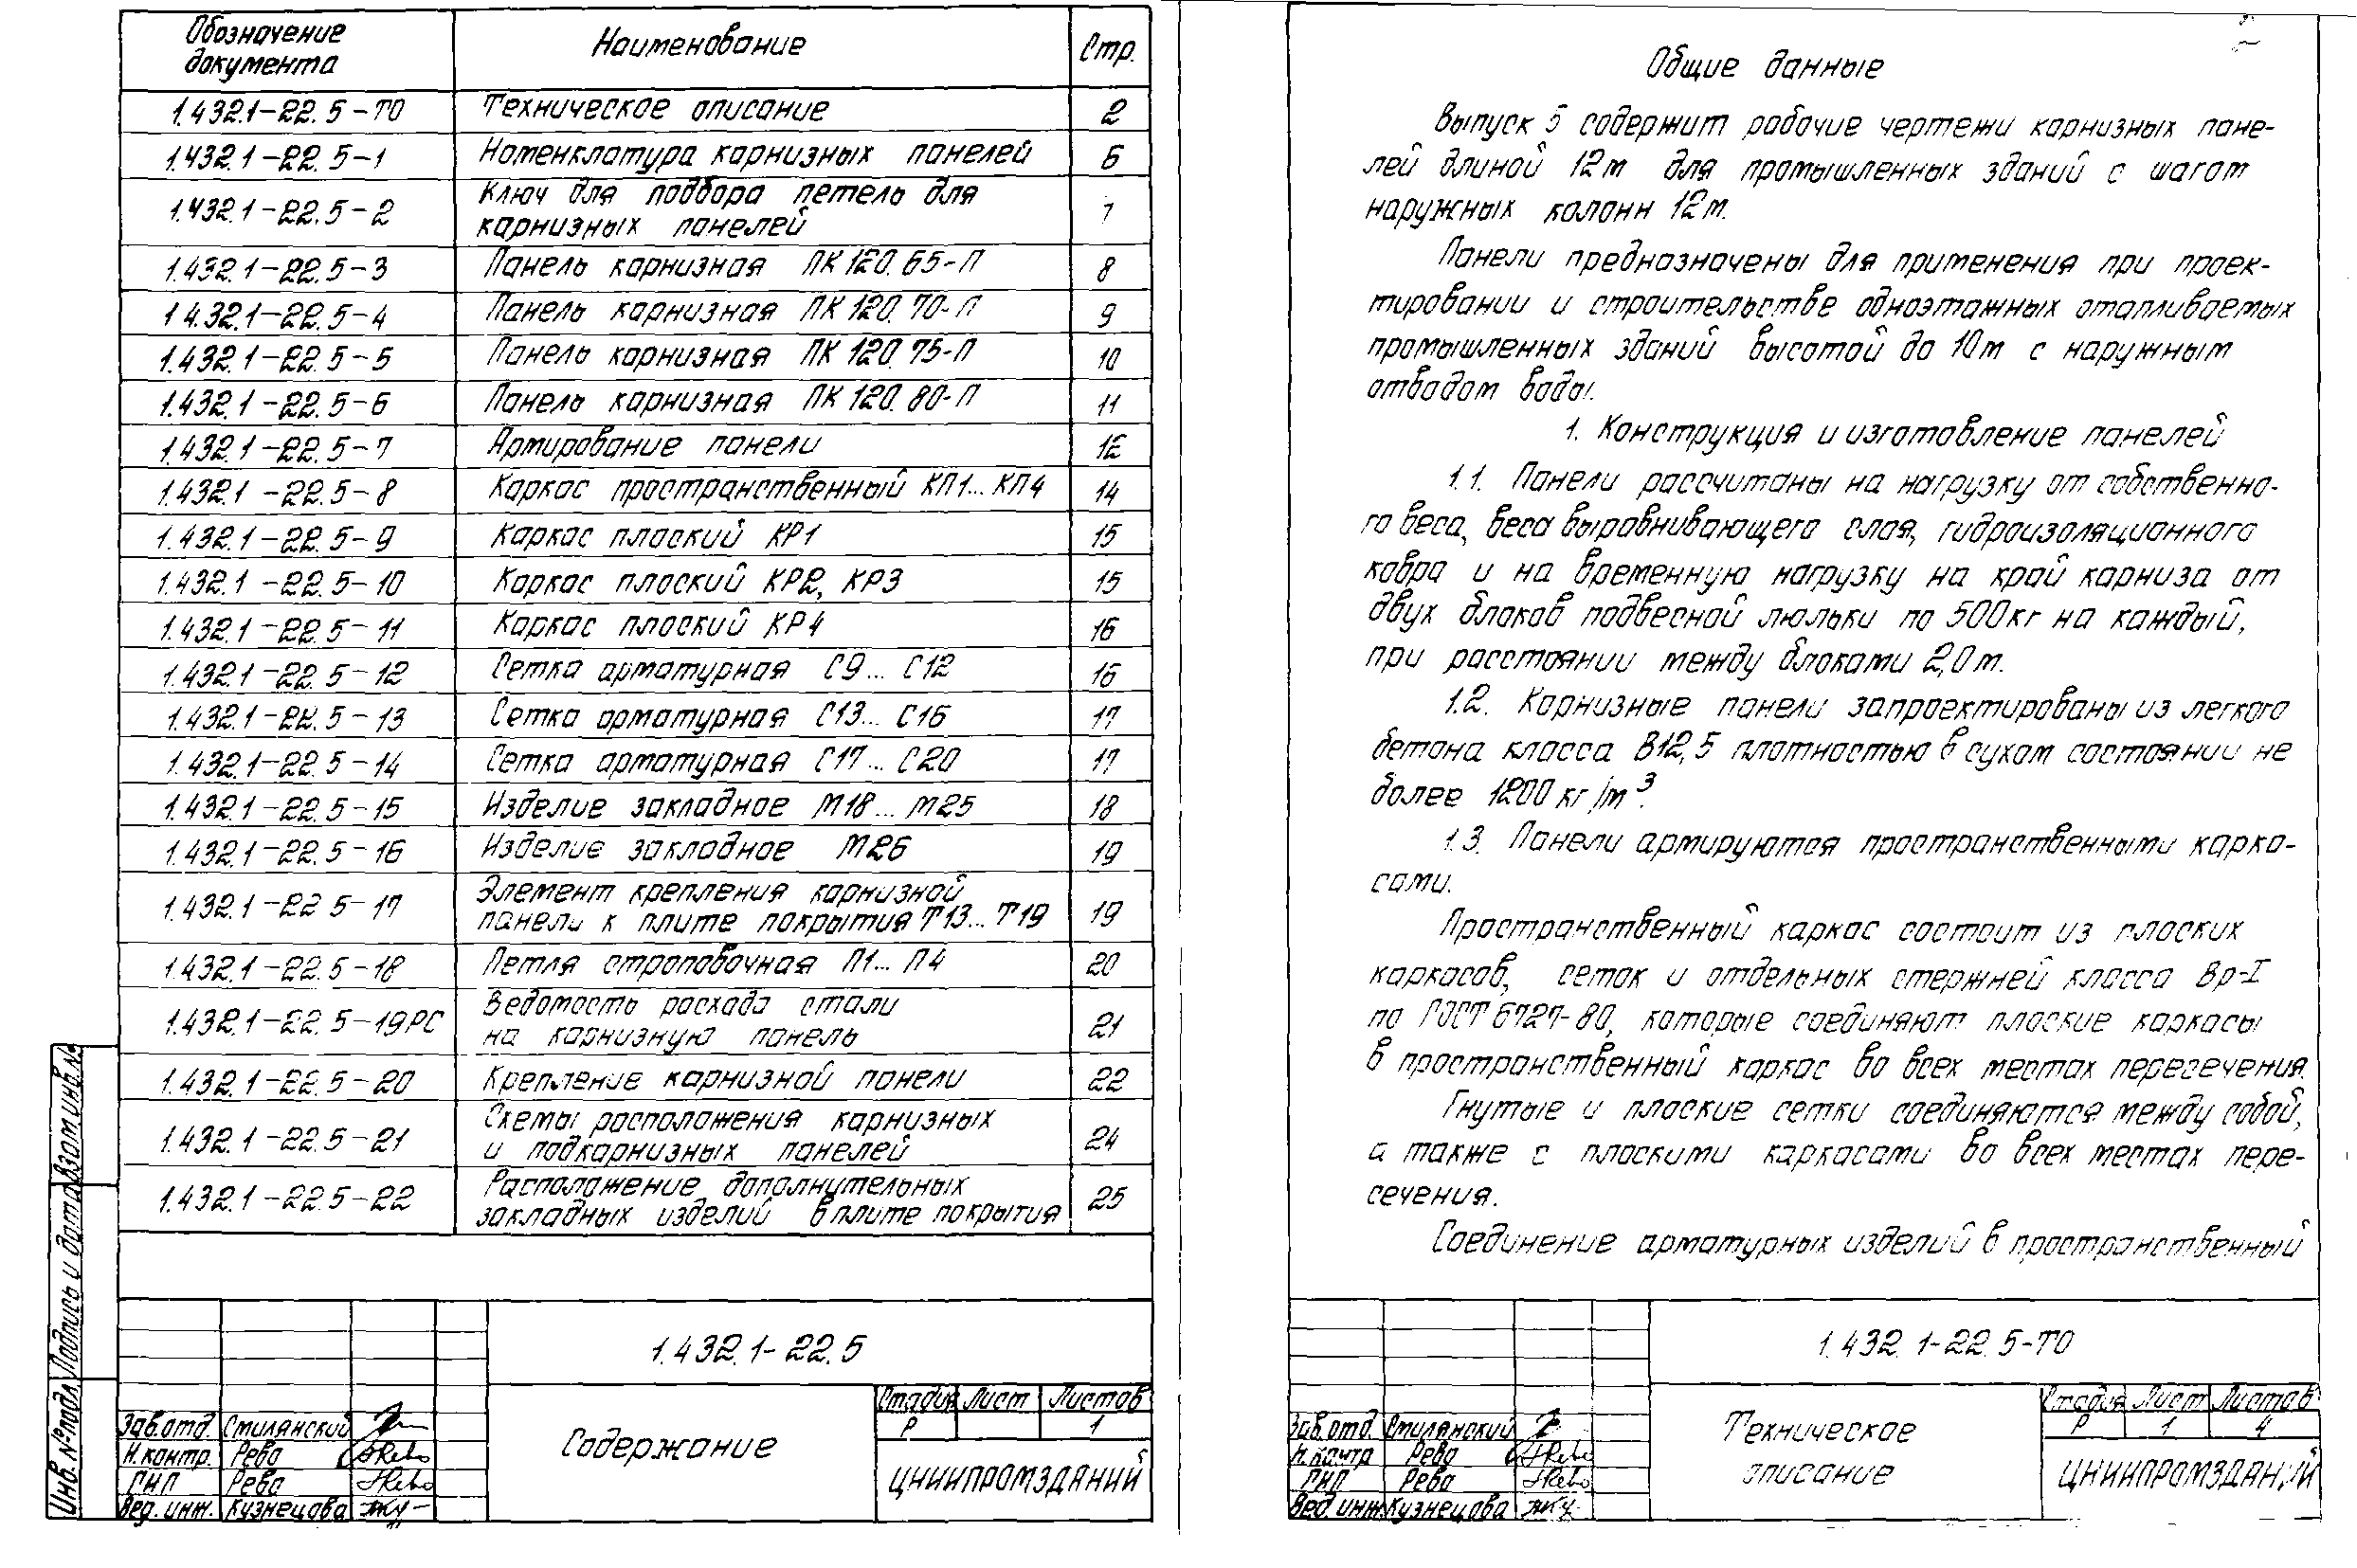 Обозначение документа Наименование Стр.
1.432.1-22.5-ТО Техническое описание 2
1.432.1-22.5-1 Номенклатура карнизных панелей 6
1.432.1-22.5-2 Ключ для подбора петель для
карнизных панелей 7
1.432.1-22.5-3 Панель карнизная ПК 120.65-П 8
1.432.1-22.5-4 Панель карнизная ПК 120.70-П 9
1.432.1-22.5-5 Панель карнизная ПК 120.75-П 10
1.432.1-22.5-6 Панель карнизная ПК 120.80-П 11
1.432.1-22.5-7 Армирование панели 12
1.432.1-22.5-8 Каркас пространственный КП1...КП4 14
1.432.1-22.5-9 Каркас плоский КР1 15
1.432.1-22.5-10 Каркас плоский КР2, КР3 15
1.432.1-22.5-11 Каркас плоский КР4 16
1.432.1-22.5-12 Сетка арматурная С9...С12 16
1.432.1-22.5-13 Сетка арматурная С13...С16 17
1.432.1-22.5-14 Сетка арматурная С17...С20 17
1.432.1-22.5-15 Изделие закладное М18...М25 18
1.432.1-22.5-16 Изделие закладное М26 19
1.432.1-22.5-17 Элемент крепления карнизной
панели к плите покрытия Т13...Т19 19
1.432.1-22.5-18 Петля строповочная П1...П4 20
1.432.1-22.5-19РС Ведомость расхода стали
на карнизную панель 21
1.432.1-22.5-20 Крепление карнизной панели 22
1.432.1-22.5-21 Схемы расположения карнизных
и подкарнизных панелей 24
1.432.1-22.5-22 Расположение дополнительных
закладных изделий в плите покрытия 25
Инв. № подл. Подпись и дата Взам инв. №
1.432.1-22.5
Содержание
Стадия Лист Листов
Р 1
ЦНИИПРОМЗДАНИЙ
Зав. отд. Смилянский
Н. контр. Рева
ГИП Рева
Вед. инж. Кузнецова
Общие данные
Выпуск 5 содержит рабочие чертежи карнизных пане-
лей длиной 12м для промышленных зданий с шагом
наружных колонн 12м.
Панели предназначены для применения при проек-
тировании и строительстве одноэтажных отапливаемых
промышленных зданий высотой до 10м с наружным
отводом воды.
1. Конструкция и изготовление панелей
1.1. Панели рассчитаны на нагрузку от собственно-
го веса, веса выравнивающего слоя, гидроизоляционного
ковра и на временную нагрузку на край карниза от
двух блоков подвесной люльки по 500кг на каждый,
при расстоянии между блоками 2,0м.
1.2. Карнизные панели запроектированы из легкого
бетона класса В12,5 плотностью в сухом состоянии не
более 1200 кг/м³.
1.3. Панели армируются пространственными карка-
сами.
Пространственный каркас состоит из плоских
каркасов, сеток и отдельных стержней класса Вр-I
по ГОСТ 6727-80, которые соединяют плоские каркасы
в пространственный каркас во всех местах пересечения.
Гнутые и плоские сетки соединяются между собой,
а также с плоскими каркасами во всех местах пере-
сечения.
Соединение арматурных изделий в пространственный
1.432.1-22.5-ТО
Техническое
описание
Стадия Лист Листов
Р 1 4
ЦНИИПРОМЗДАНИЙ
Зав. отд. Смилянский
Н. контр Рева
ГИП Рева
Вед. инж Кузнецова